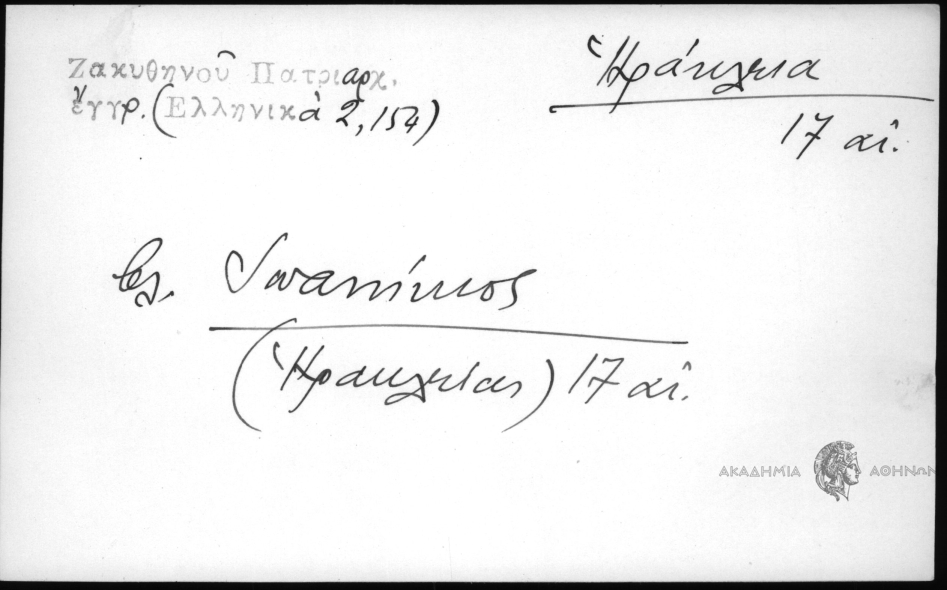 Ζακυθηνοῦ Πατριαρχ.
ἔγγρ. (Ἑλληνικὰ 2, 154)
Ἡράκλεια
17 αἰ.
βλ. Ἰωαννίκιος
(Ἡρακλείας) 17 αἰ.
ΑΚΑΔΗΜΙΑ ΑΘΗΝΩΝ